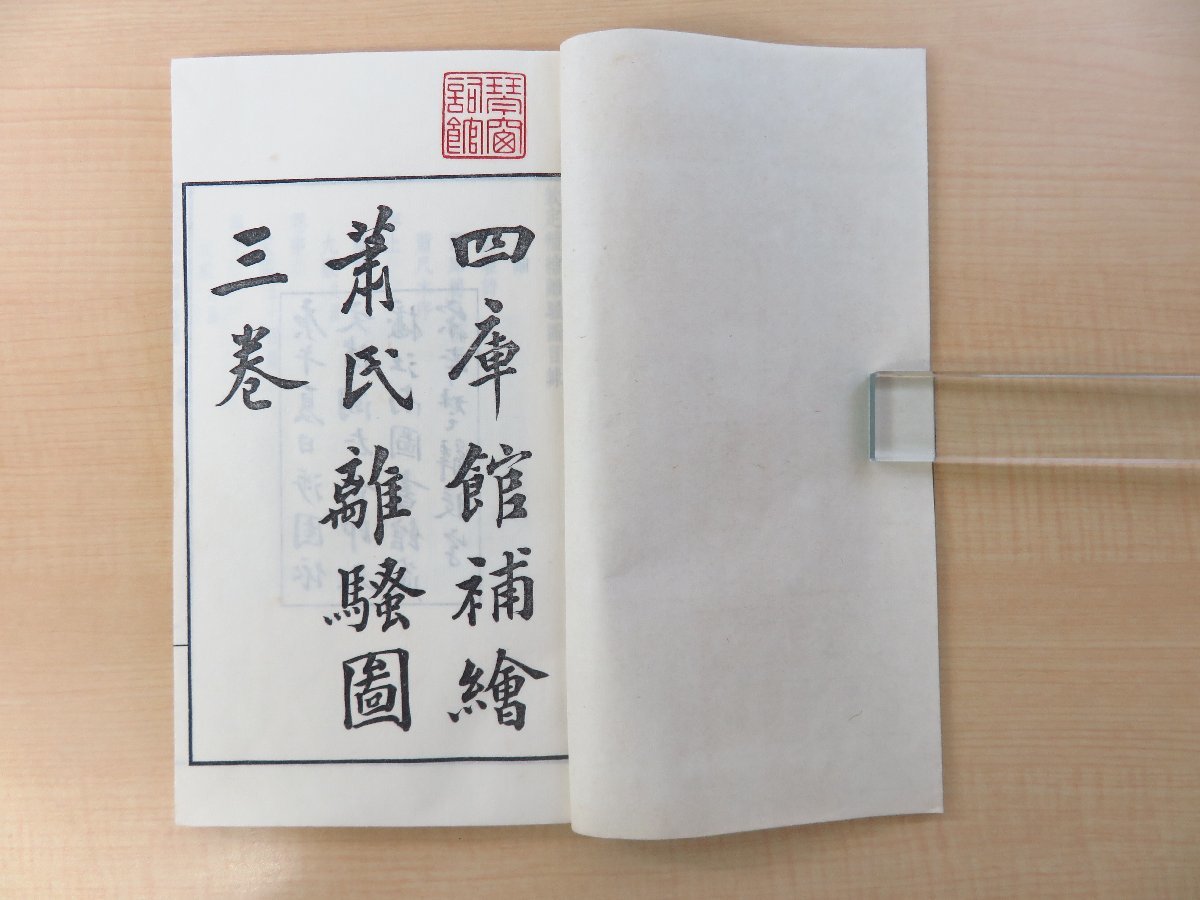 琴窗
詞館
四庫館補繪
蕭氏離騷圖
三卷